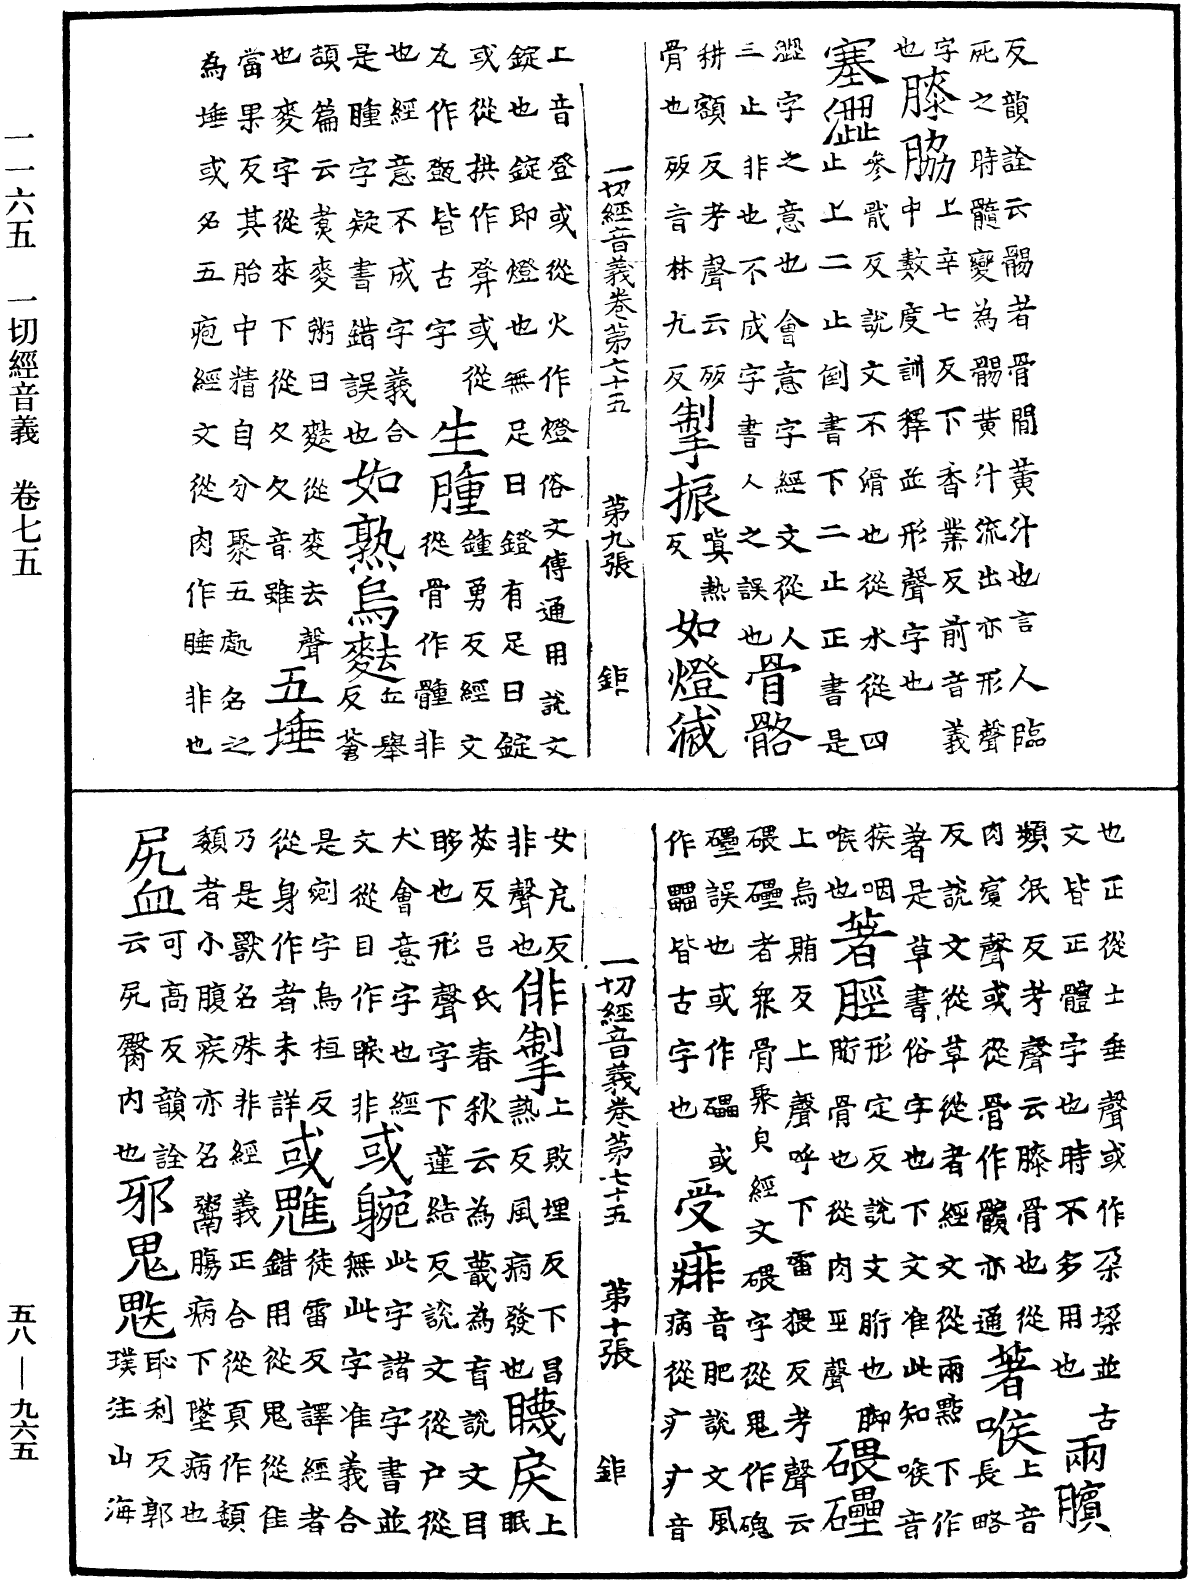 反韻詮云髑者骨間黃汁也言人臨
死之時髓變為髑黃汁流出亦形聲
字也 膝脇 上辛七反下香業反前音義中數度訓釋並形聲字也
塞澀 參戢反說文不滑也從水從四止上二止倒書下二止正書是
澀字之意也會意字經文從人三止非也不成字書人之誤也 骨骼
耕額反考聲云骨也音林九反 掣振 嗔熱反 如燈滅
一切經音義卷第七十五 第九張 鉅
上音登或從火作燈俗文傳通用說文
錠也錠即燈也無足曰鐙有足曰錠
或從拱作或從作皆古字 生腫 鍾勇反經文從骨作非
也經意不成字義合是腫字疑書錯誤也 如熟烏麩 丘舉反蒼
頡篇云煑麥粥曰麩從麥去聲也麥字從來下從夊夊音雖 五埵
當果反其胎中精自分聚五處名之
為埵或名五疱經文從肉作腄非也
也正從士垂聲或作朵垛並古
文皆正體字也時不多用也 兩臏
頻泯反考聲云膝骨也從肉賓聲或從骨作髕亦通 著喉 上音長略
反說文從草從者經文從兩點下作
著是草書俗字也下文准此知喉音
猴咽喉也 著脛 形定反說文胻也脚胻骨也從肉巠聲 碨礧
上烏賄反上聲呼下雷猥反考聲云
碨礧者衆骨聚皃經文碨字從鬼作磈
礧誤也或作礌或作畾皆古字也 受痱 音肥說文風病從疒疒音
一切經音義卷第七十五 第十張 鉅
女戹反非聲也 俳掣 上敗埋反下昌熱反風病發也 戾 上眠
苾反呂氏春秋云為為盲說文目
眵也形聲字下蓮結反說文從户從
犬會意字也經文從目作睙非 或 此字諸字書並無此字准義合
是剜字烏桓反從身作者未詳 或魋 徒雷反譯經者錯用從鬼從隹
乃是獸名殊非經義正合從頁作頹
頹者小腹疾亦名腸病下墜病也
尻血 可高反韻詮云尻臀內也 邪鬼魅 恥利反郭璞注山海
一一六五 一切經音義 卷七五
五八—九六五